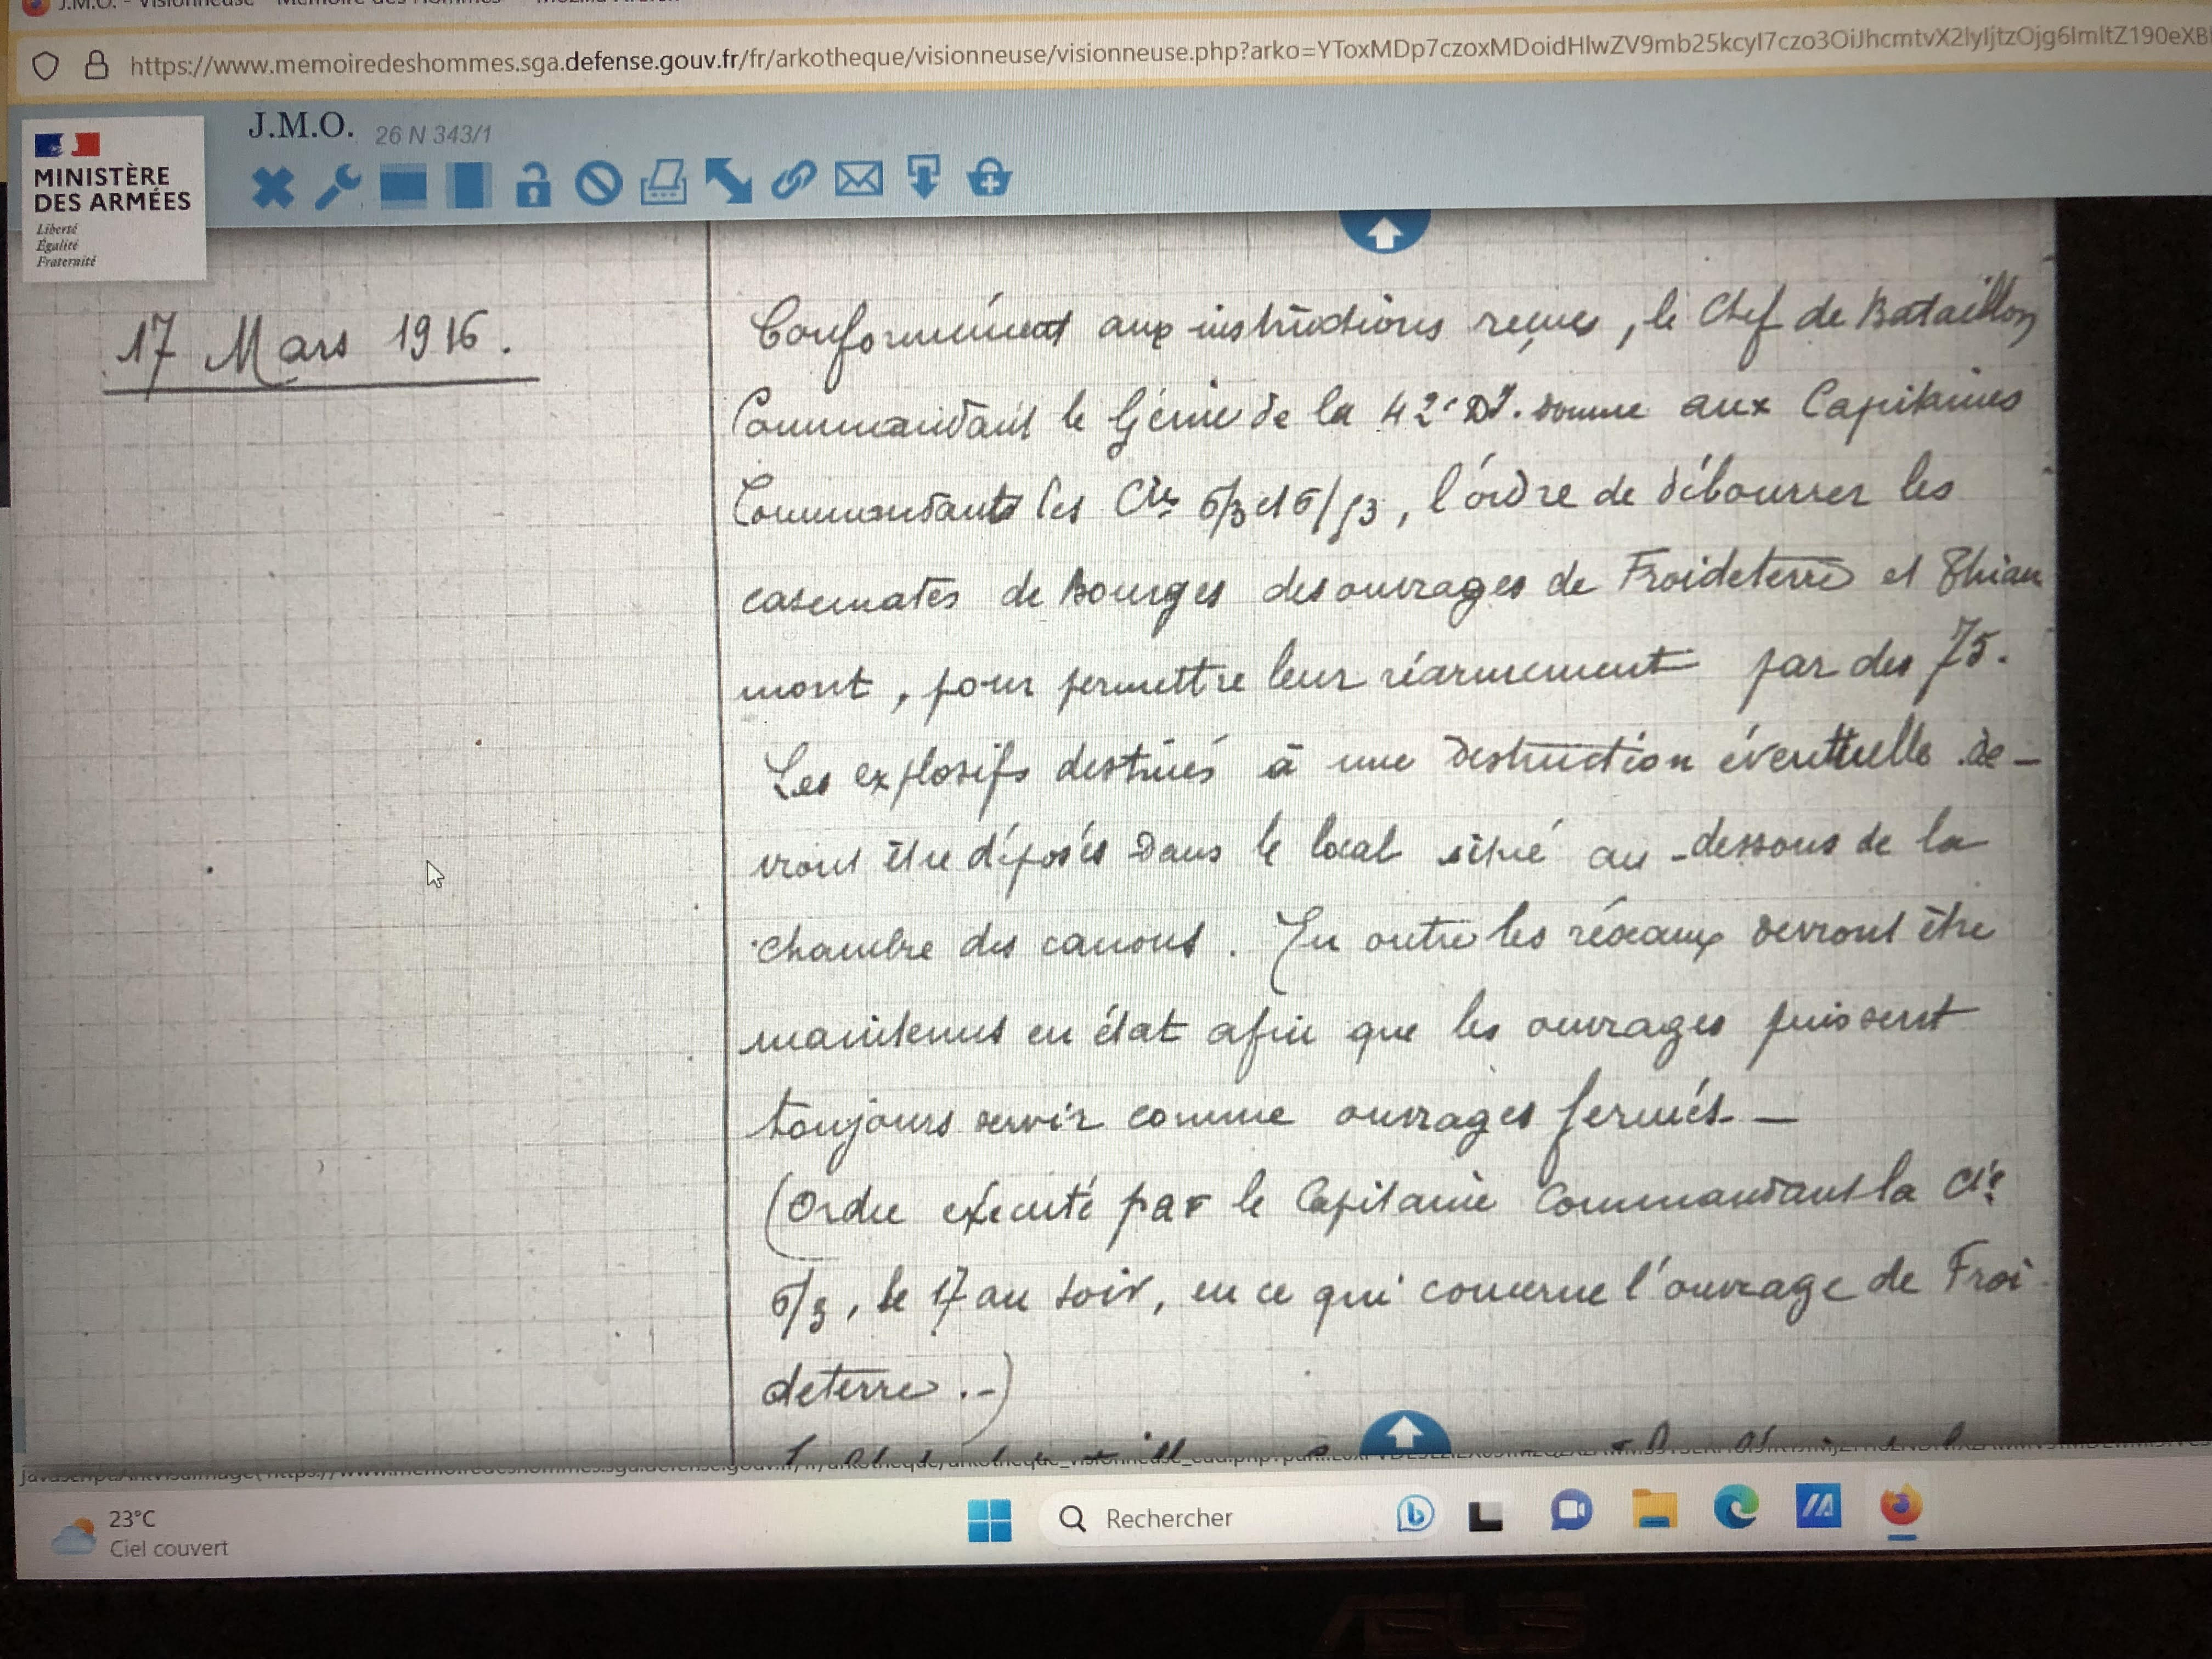 https://www.memoiredeshommes.sga.defense.gouv.fr/fr/arkotheque/visionneuse/visionneuse.php?arko=
J.M.O. 26 N 343/1
MINISTÈRE
DES ARMÉES
Liberté
Égalité
Fraternité
17 Mars 1916.
Conformément aux instructions reçues, le Chef de Bataillon
Commandant le Génie de la 42e DI. donne aux Capitaines
Commandants les Cies 6/3 et 6/53, l'ordre de débourrer les
casemates de Bourges des ouvrages de Froideterre et Thiau
mont, pour permettre leur réarmement par des 75.
Les explosifs destinés à une destruction éventuelle de-
vront être déposés dans le local situé au-dessous de la
chambre des canons. En outre les réseaux devront être
maintenus en état afin que les ouvrages puissent
toujours servir comme ouvrages fermés. —
(Ordre exécuté par le Capitaine Commandant la Cie
6/3, le 17 au soir, en ce qui concerne l'ouvrage de Froi-
deterre.-)
23°C
Ciel couvert
Rechercher
ASUS